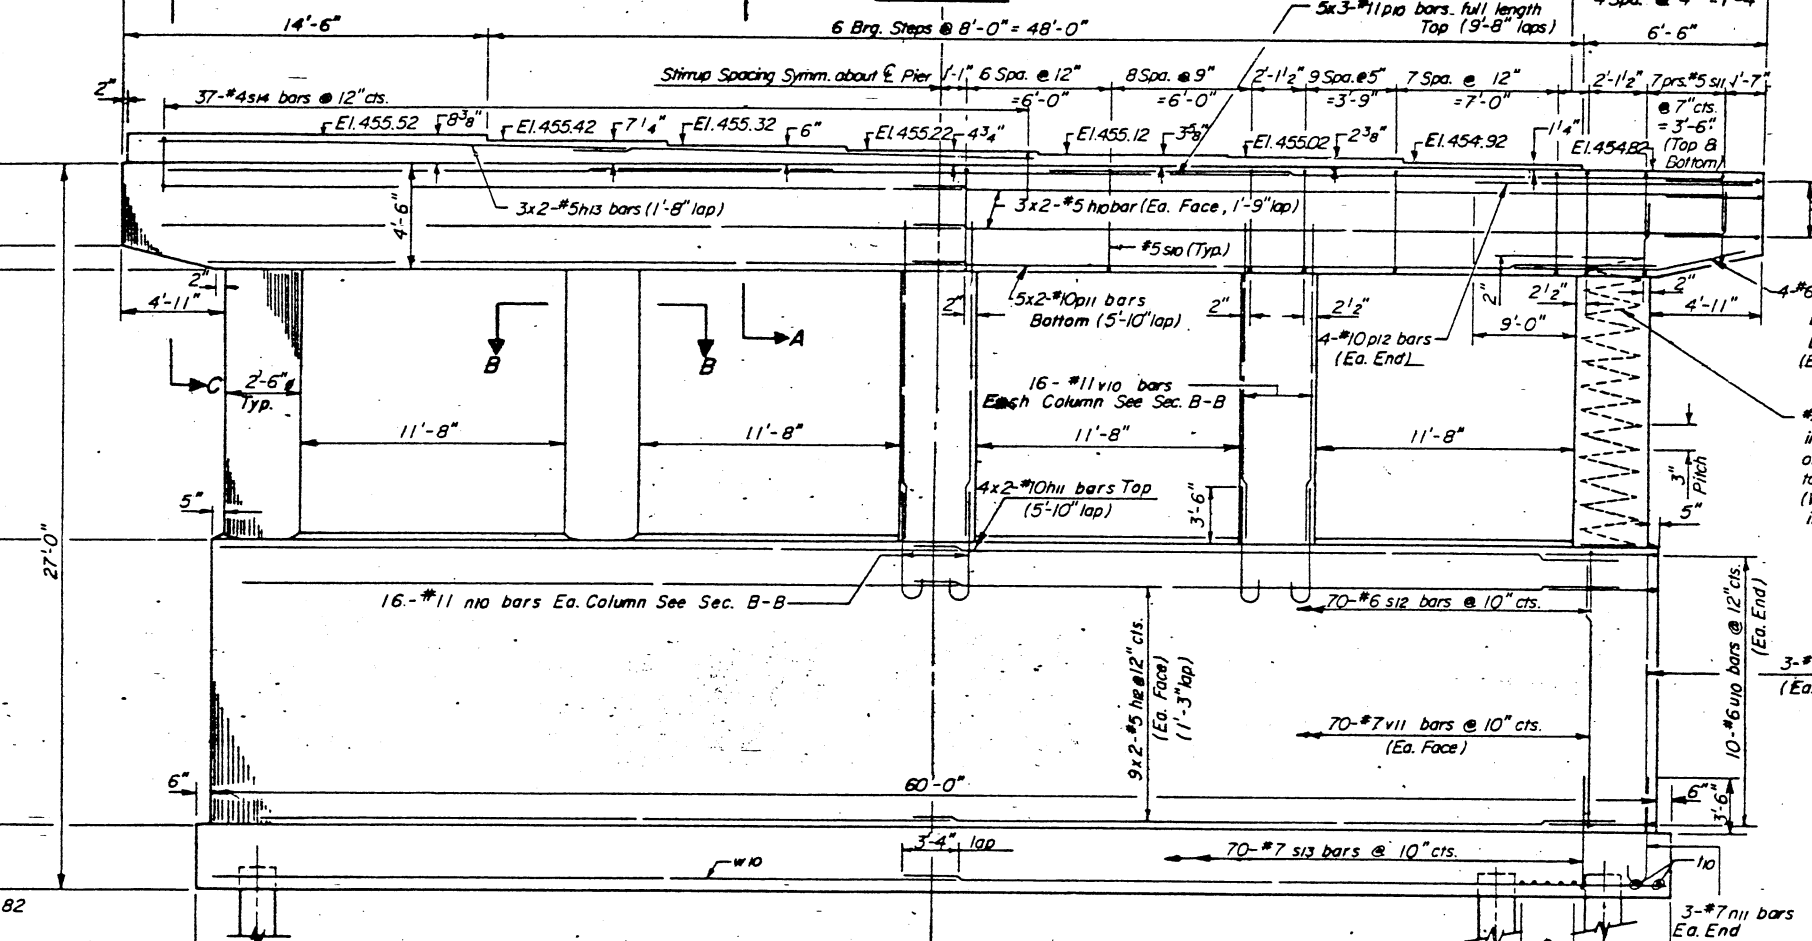 5x3-#11p10 bars. full length
Top (9'-8" laps)
14'-6"
6 Brg. Steps @ 8'-0" = 48'-0"
6'-6"
Stirrup Spacing Symm. about ℄ Pier
1'-1"
6 Spa. @ 12"
=6'-0"
8 Spa. @ 9"
=6'-0"
2'-1½"
9 Spa. @ 5"
=3'-9"
7 Spa. @ 12"
=7'-0"
2'-1½"
7 prs. #5 s11
1'-7"
@ 7" cts.
= 3'-6"
(Top &
Bottom)
2"
37-#4 s14 bars @ 12" cts.
El. 455.52
8⅜"
El. 455.42
7¼"
El. 455.32
6"
El. 455.22
4¾"
El. 455.12
3⅝"
El. 455.02
2⅜"
El. 454.92
1¼"
El. 454.82
3x2-#5 h13 bars (1'-8" lap)
4'-6"
3x2-#5 h10 bar (Ea. Face, 1'-9" lap)
#5 s10 (Typ.)
2"
4'-11"
5x2-#10p11 bars
Bottom (5'-10" lap)
2"
2"
2½"
2"
2½"
2"
4'-11"
4-#6
9'-0"
4-#10 p12 bars
(Ea. End)
A
B
B
C
2'-6" ø
Typ.
16-#11 v10 bars
Each Column See Sec. B-B
11'-8"
11'-8"
11'-8"
11'-8"
3"
Pitch
4x2-#10h11 bars Top
(5'-10" lap)
3'-6"
5"
5"
27'-0"
16-#11 n10 bars Ea. Column See Sec. B-B
70-#6 s12 bars @ 10" cts.
9x2-#5 h12 @ 12" cts.
(Ea. Face)
(11'-3" lap)
10-#6 u10 bars @ 12" cts.
(Ea. End)
3-#
(Ea.
70-#7 v11 bars @ 10" cts.
(Ea. Face)
6"
60'-0"
6"
3'-6"
3'-4" lap
w10
70-#7 s13 bars @ 10" cts.
t10
82
3-#7 n11 bars
Ea. End